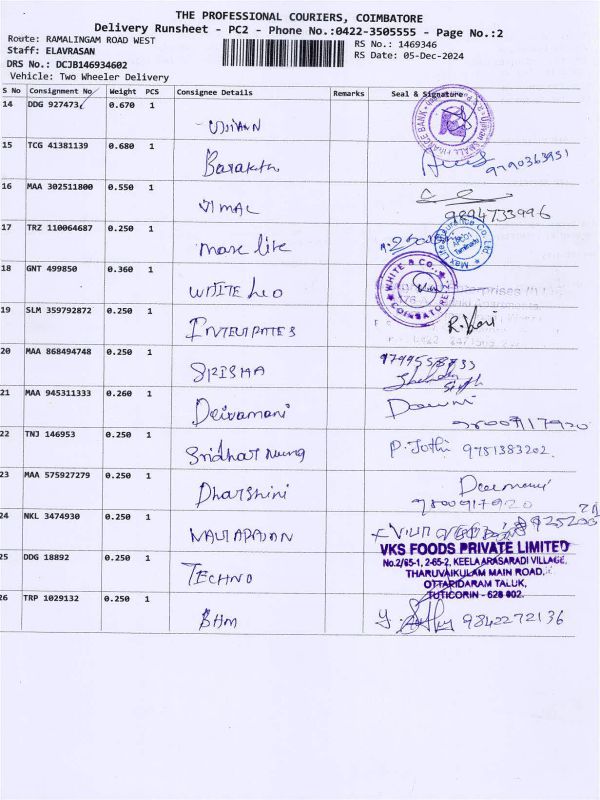 THE PROFESSIONAL COURIERS, COIMBATORE
Delivery Runsheet - PC2 - Phone No.:0422-3505555 - Page No.:2
Route: RAMALINGAM ROAD WEST
RS No.: 1469346
Staff: ELAVRASAN
RS Date: 05-Dec-2024
DRS No.: DCJB146934602
Vehicle: Two Wheeler Delivery
S No Consignment No Weight PCS Consignee Details Remarks Seal & Signature
14 DDG 927473 0.670 1
15 TCG 41381139 0.680 1 9790363951
16 MAA 302511800 0.550 1 VIMAL
9894733996
17 TRZ 110064687 0.250 1 maxe life
Max Life Insurance Co. Ltd.
18 GNT 499850 0.360 1 WHITE Leo
WHITE & CO.,
COIMBATORE
19 SLM 359792872 0.250 1 R. Hari
20 MAA 868494748 0.250 1
21 MAA 945311333 0.260 1 Deivamani
22 TNJ 146953 0.250 1 Sridhar P. Jothi 9751383202.
23 MAA 575927279 0.250 1 Dharshini
9800917920
24 NKL 3474930 0.250 1
VKS FOODS PRIVATE LIMITED
25 DDG 18892 0.250 1 TECHNO
No.2/65-1, 2-65-2, KEELA ARASARADI VILLAGE,
THARUVAIKULAM MAIN ROAD,
OTTAPIDARAM TALUK,
TUTICORIN - 628 002.
26 TRP 1029132 0.250 1 BHM 9842272136